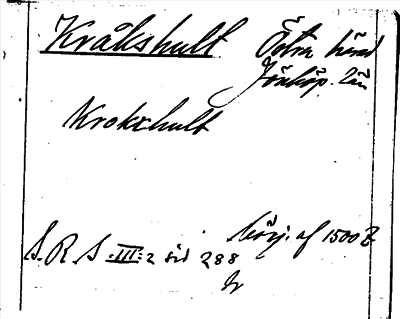 Kråkshult Östra härad
Jönköp. län
Krokxhult
börj. af 1500 t
S. R. S. III:2 sid 288